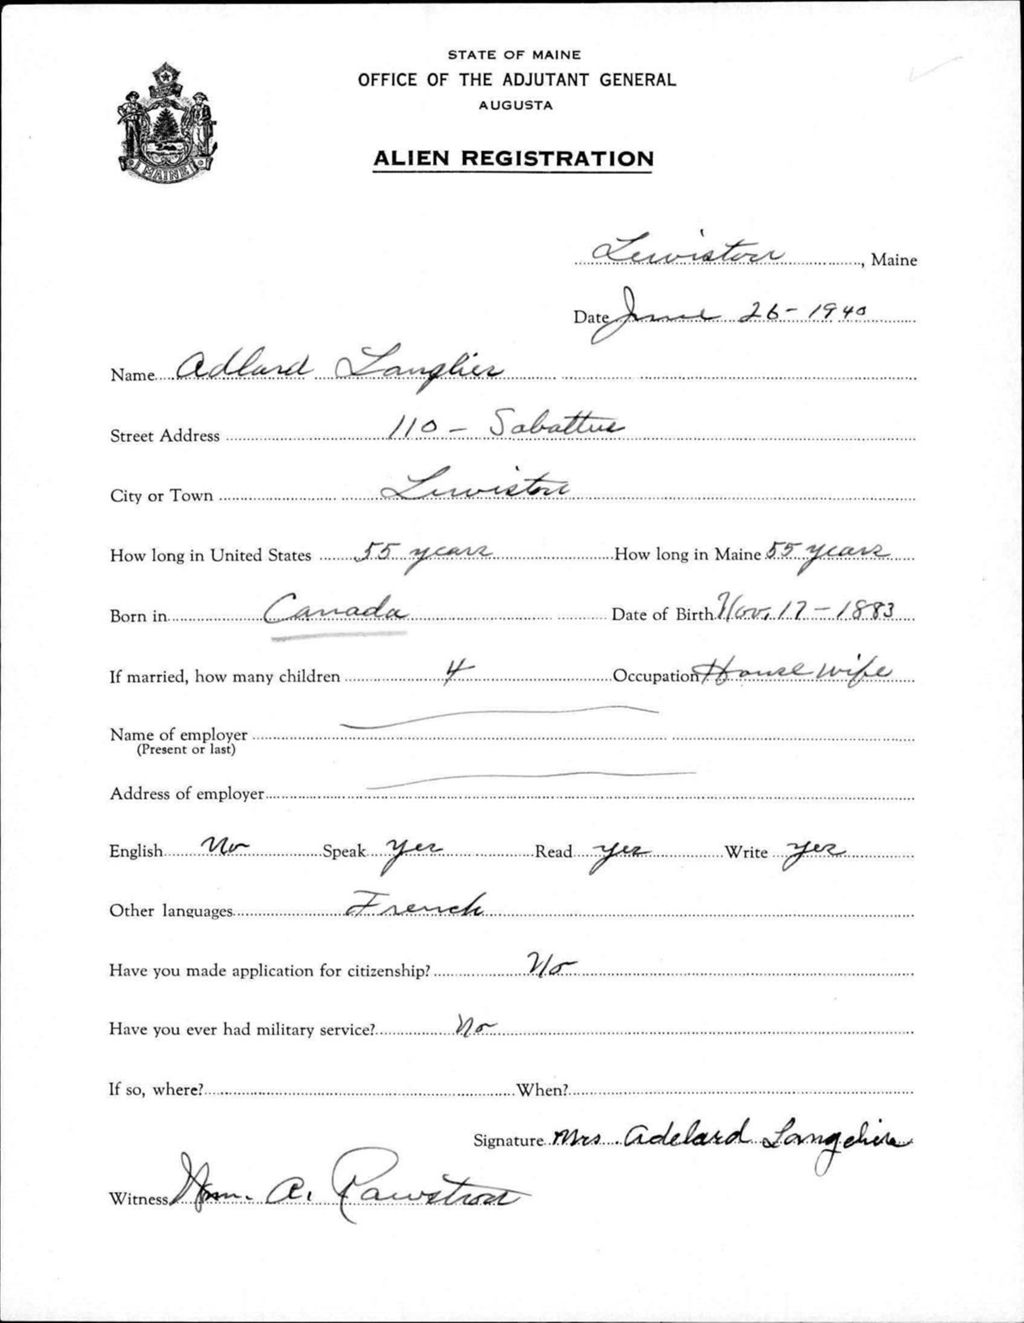 STATE OF MAINE
OFFICE OF THE ADJUTANT GENERAL
AUGUSTA
ALIEN REGISTRATION
MAINE
Lewiston, Maine
Date June 26-1940
Name Adlard Langlier
Street Address 110 - Sabattus
City or Town Lewiston
How long in United States 55 years How long in Maine 55 years
Born in Canada Date of Birth Nov. 17-1883
If married, how many children 4 Occupation House wife
Name of employer
(Present or last)
Address of employer
English No Speak yes Read yes Write yes
Other languages French
Have you made application for citizenship? No
Have you ever had military service? No
If so, where? When?
Signature Mrs Adelard Langelier
Witness Wm. A. Rawstron